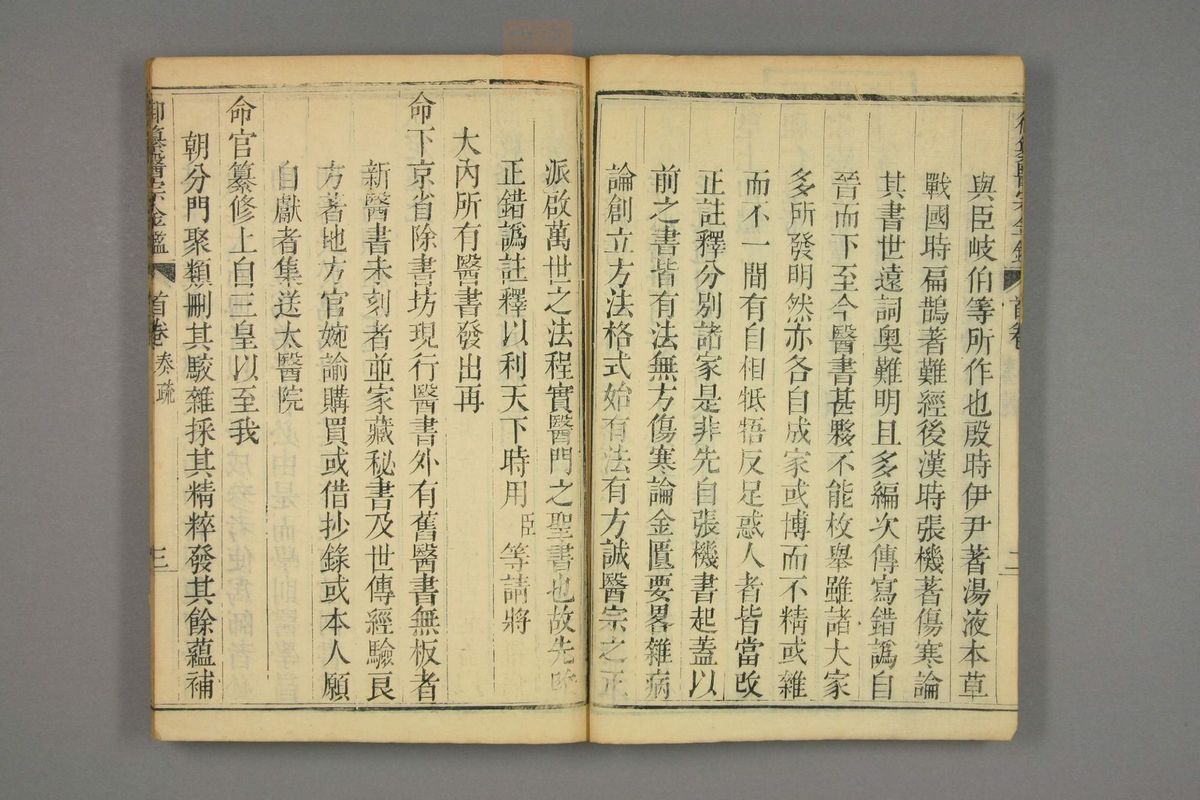 與臣岐伯等所作也殷時伊尹著湯液本草
戰國時扁鵲著難經後漢時張機著傷寒論
其書世遠詞奧難明且多編次傳寫錯譌自
晉而下至今醫書甚夥不能枚舉雖諸大家
多所發明然亦各自成家或博而不精或雜
而不一間有自相牴牾反足惑人者皆當改
正註釋分別諸家是非先自張機書起蓋以
前之書皆有法無方傷寒論金匱要畧雜病
論創立方法格式始有法有方誠醫宗之正
派啟萬世之法程實醫門之聖書也故先改
正錯譌註釋以利天下時用臣等請將
大內所有醫書發出再
命下京省除書坊現行醫書外有舊醫書無板者
新醫書未刻者並家藏秘書及世傳經驗良
方著地方官婉諭購買或借抄錄或本人願
自獻者集送太醫院
命官纂修上自三皇以至我
朝分門聚類刪其駁雜採其精粹發其餘蘊補
御纂醫宗金鑑 首卷 奏疏 三